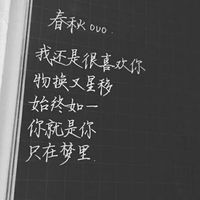 春秋ovo.
我还是很喜欢你
物换又星移
始终如一
你就是你
只在梦里.